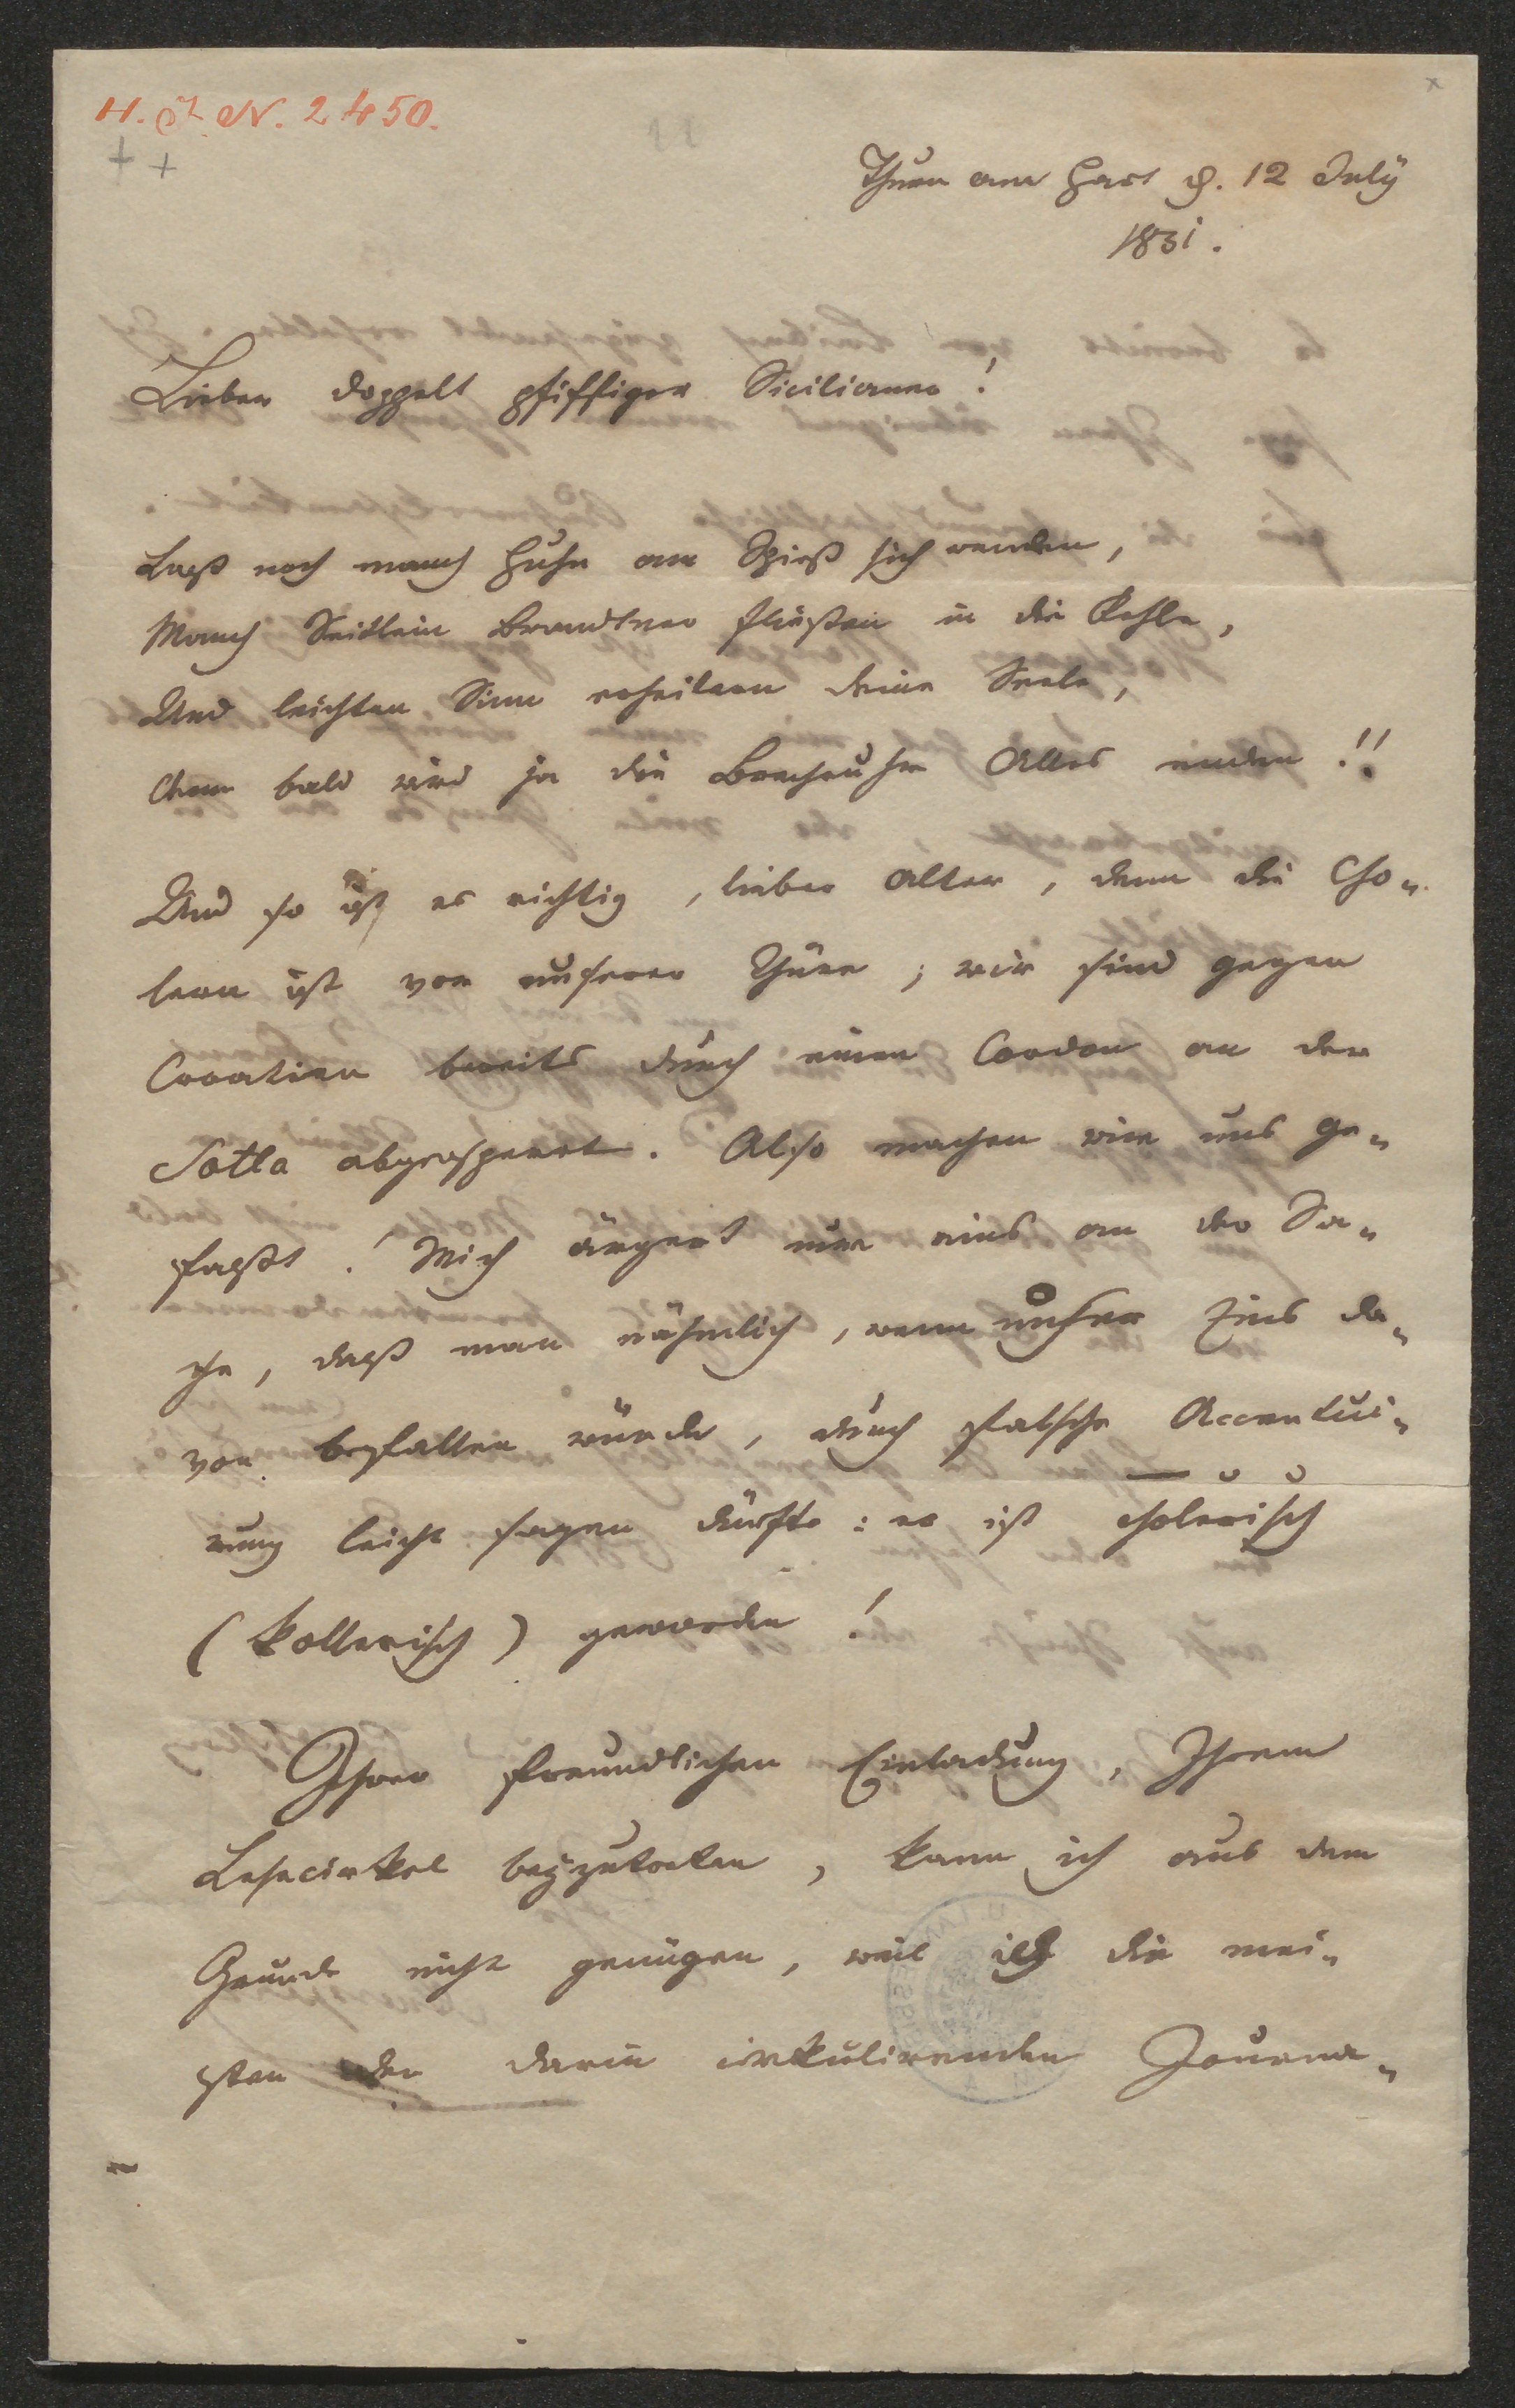 H. I. N. 2450.
Thurn am Hart d. 12 July
1831.
Lieber doppelt pfiffiger Sicilianer!
Laß noch manch Huhn am Spieß sich wenden,
Manch Seitlein Brandtner fließen in die Kehle,
Und leichten Sinn erheitern deine Seele,
Denn bald wird ja die Brechruhr Alles enden!!
Und so ist es richtig, lieber Alter, denn die Cho„
lera ist vor unserer Thüre; wir sind gegen
Croatien bereits durch einen Cordon an der
Sotla abgesperrt. Also machen wir uns ge„
faßt! Mich ärgert nur eins an der Sa„
che, daß man nähmlich, wenn unser Eins da„
von befallen würde, durch falsche Accentui„
rung leicht sagen dürfte: er ist cholerisch
(kollerisch) geworden!
Ihrer freundlichen Einladung, Ihrem
Lesecirkel beyzutreten, kann ich aus dem
Grunde nicht genügen, weil ich die mei„
sten der darin cirkulirenden Journa„